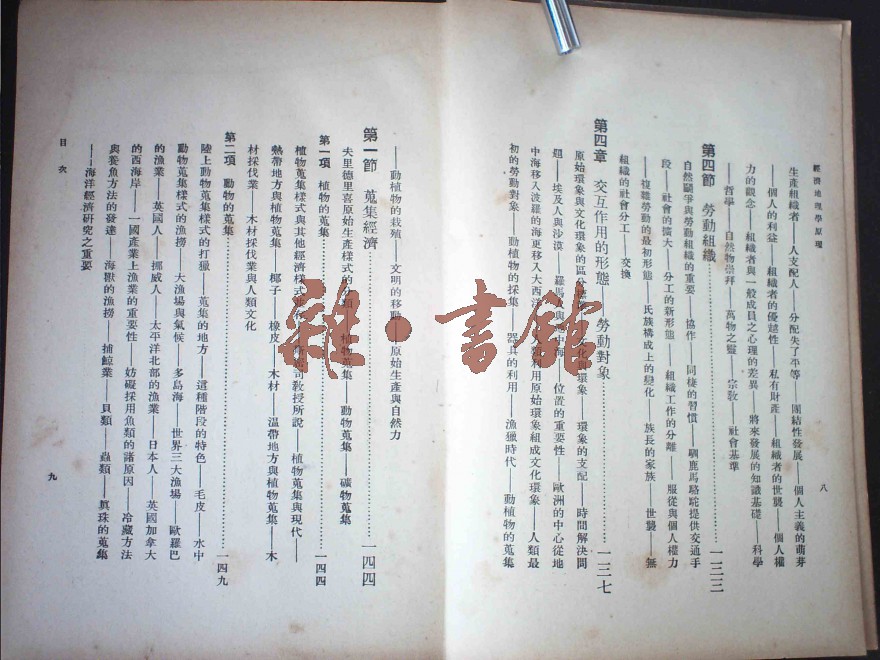 經濟地理學原理
八
生產組織者——人支配人——分配失了平等——團結性發展——個人主義的萌芽
——個人的利益——組織者的優越性——私有財產——組織者的世襲——個人權
力的觀念——組織者與一般成員之心理的差異——將來發展的知識基礎——科學
——哲學——自然物崇拜——萬物之靈——宗教——社會基準
第四節 勞動組織…………一三三
自然鬭爭與勞動組織的重要——協作——同棲的習慣——馴鹿馬駱駝提供交通手
段——社會的擴大——分工的新形態——組織工作的分離——服從與個人權力
——複雜勞動的最初形態——氏族構成上的變化——族長的家族——世襲——無
組織的社會分工——交換
第四章 交互作用的形態——勞動對象…………一三七
原始環象與文化環象的區分 文化 環象——環象的支配——時間解決問
題——埃及人與沙漠——羅馬 與 中海——位置的重要性——歐洲的中心從地
中海移入波羅的海更移入大西洋 人類利用原始環象組成文化環象——人類最
初的勞動對象——動植物的採集——器具的利用——漁獵時代——動植物的蒐集
——動植物的栽殖——文明的移動——原始生產與自然力
第一節 蒐集經濟…………一四四
夫里德里喜原始生產樣式的分類——植物蒐集——動物蒐集——礦物蒐集
第一項 植物的蒐集…………一四四
植物蒐集樣式與其他經濟樣式並存 教授所說——植物蒐集與現代——
熱帶地方與植物蒐集——椰子——橡皮——木材——溫帶地方與植物蒐集——木
材採伐業——木材採伐業與人類文化
第二項 動物的蒐集…………一四九
陸上動物蒐集樣式的打獵——蒐集的地方——這種階段的特色——毛皮——水中
動物蒐集樣式的漁撈——大漁場與氣候——多島海——世界三大漁場——歐羅巴
的漁業——英國人——挪威人——太平洋北部的漁業——日本人——英國加拿大
的西海岸——一國產業上漁業的重要性——妨礙採用魚類的諸原因——冷藏方法
與養魚方法的發達——海獸的漁撈——捕鯨業——貝類——蟲類——眞珠的蒐集
——海洋經濟研究之重要
目次
九
雜·書館